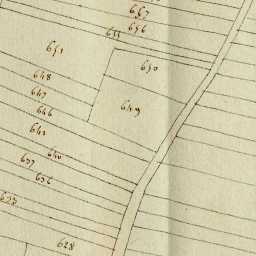 657
656
655
651
650
648
647
649
646
641
640
637
636
628